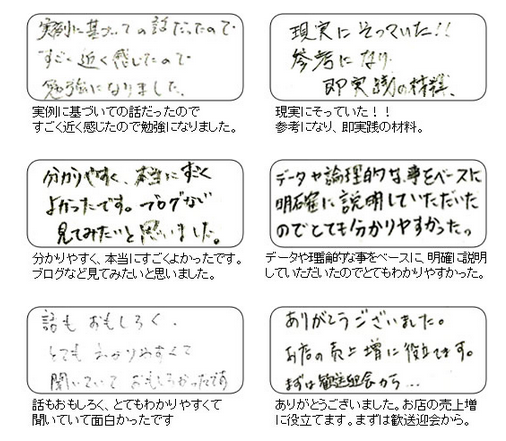 実例に基づいての話だったので
すごく近く感じたので
勉強になりました。
実例に基づいての話だったので
すごく近く感じたので勉強になりました。
現実にそっていた!!
参考になり
即実践の材料、
現実にそっていた!!
参考になり、即実践の材料。
分かりやすく、本当にすごく
よかったです。ブログなど
見てみたいと思いました。
分かりやすく、本当にすごくよかったです。
ブログなど見てみたいと思いました。
データや論理的な、事をベースに
明確に説明していただいた
のでとても分かりやすかったっ
データや理論的な事をベースに、明確に説明
していただいたのでとてもわかりやすかった。
話もおもしろく.
とてもわかりやすくて
聞いていておもしろかったです
話もおもしろく、とてもわかりやすくて
聞いていて面白かったです
ありがとうございました。
お店の売上増に役立てます。
まずは歓送迎会から...
ありがとうございました。お店の売上増
に役立てます。まずは歓送迎会から。